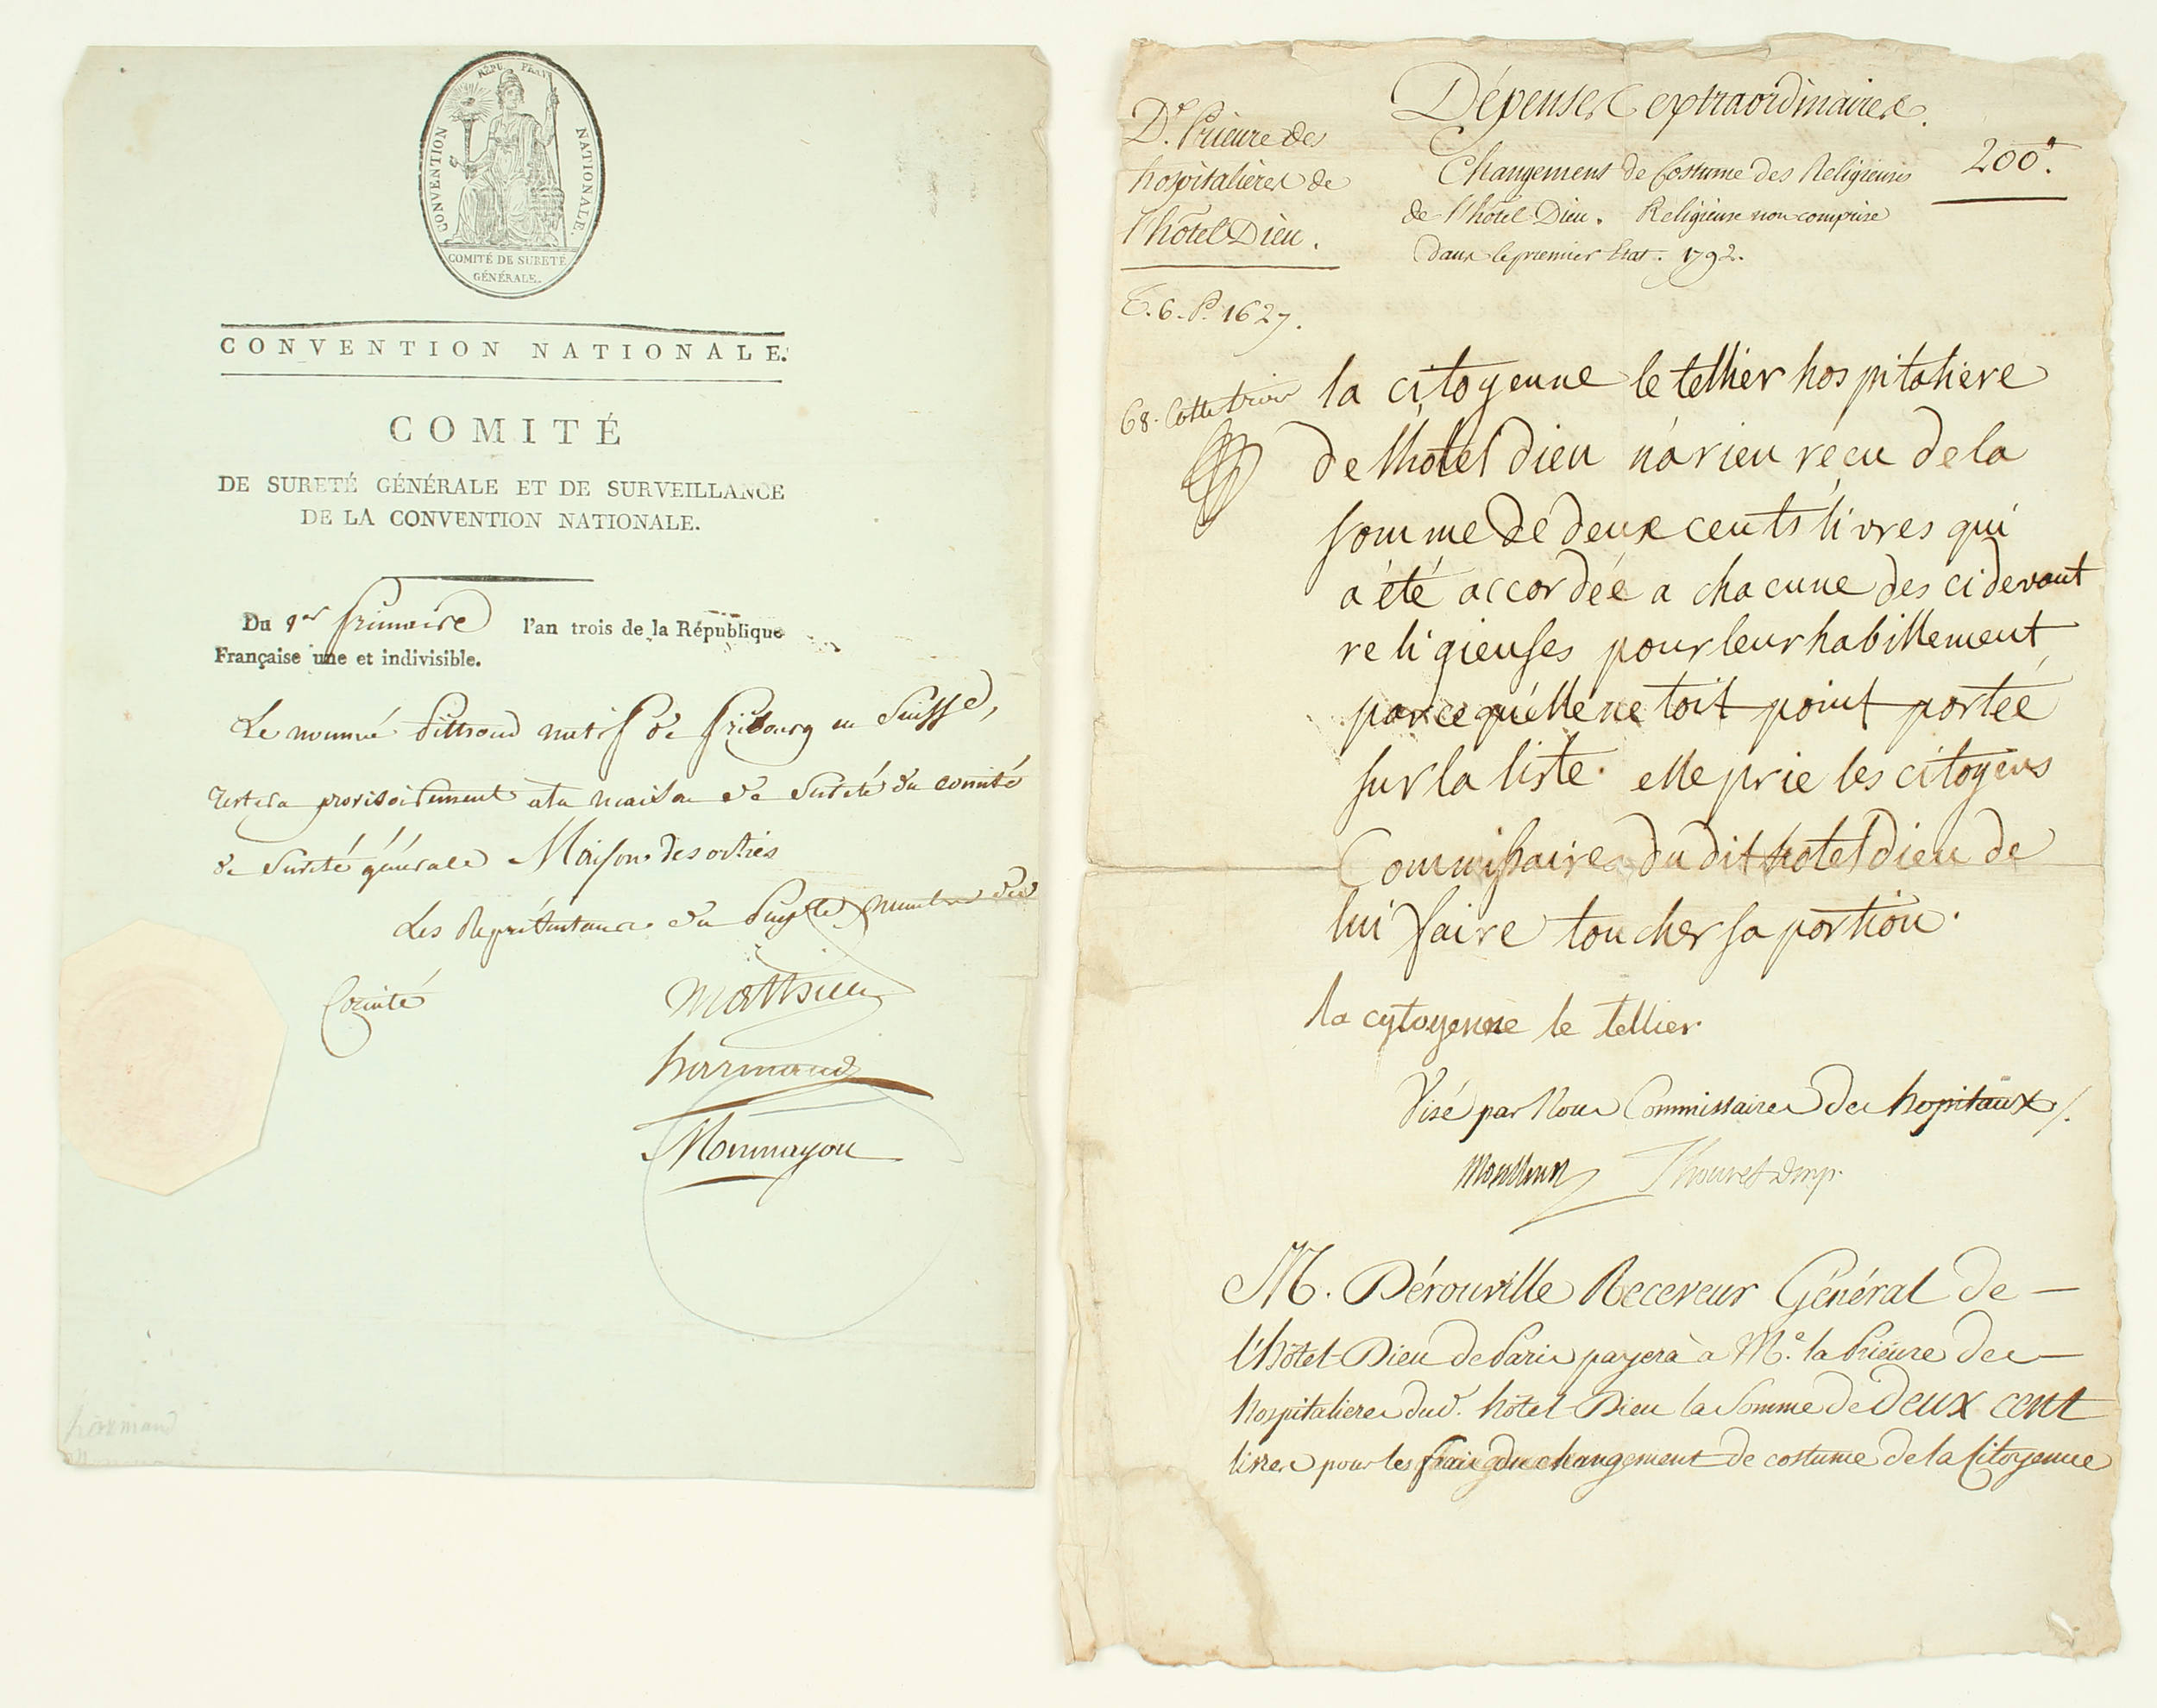 RÉPU. FRAN.
CONVENTION NATIONALE.
COMITÉ DE SURETÉ
GÉNÉRALE.
CONVENTION NATIONALE.
COMITÉ
DE SURETÉ GÉNÉRALE ET DE SURVEILLANCE
DE LA CONVENTION NATIONALE.
Du 1er frimaire l'an trois de la République
Française une et indivisible.
Le nommé natif de fribourg en Suisse,
restera provisoirement a la maison de Sureté du comité
de Sureté générale Maison des
Les Représentans du Peuple membres du
Comité
Mathieu
harmand
Monmayou
harmand
Dépenses extraordinaires.
De. Prieure des
hospitalieres de
l'hôtel Dieu.
Changement de Costume des Religieuses
de l'hôtel Dieu. Religieuse non comprise
dans le premier Etat. 1792.
200.
T. 6. P. 1627.
68.
la citoyenne le tellier hospitaliere
de lhótel dieu na rien recu de la
somme de deux cents livres qui
a été accordée a chacune des ci devant
religieuses pour leur habillement
parce qu'elle ne toit point portée
sur la liste. elle prie les citoyens
Commissaires du dit hotel dieu de
lui faire toucher sa portion.
la cytoyenne le tellier
Visé par Nous Commissaires des hopitaux /.
Thouret dmp.
M. Dérouville Receveur Général de —
l'hôtel-Dieu de Paris payera à Me. la Prieure des —
hospitalieres dud. hôtel-Dieu la Somme de deux cent
livres pour les frais du changement de costume de la Citoyenne